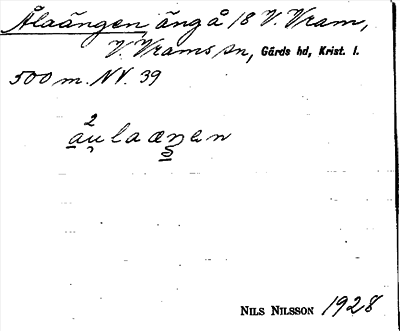 Ålaängen, äng å 18 V. Vram,
V. Vrams sn, Gärds hd, Krist. l.
500 m. NV. 39
2
au̯laæŋen
NILS NILSSON 1928